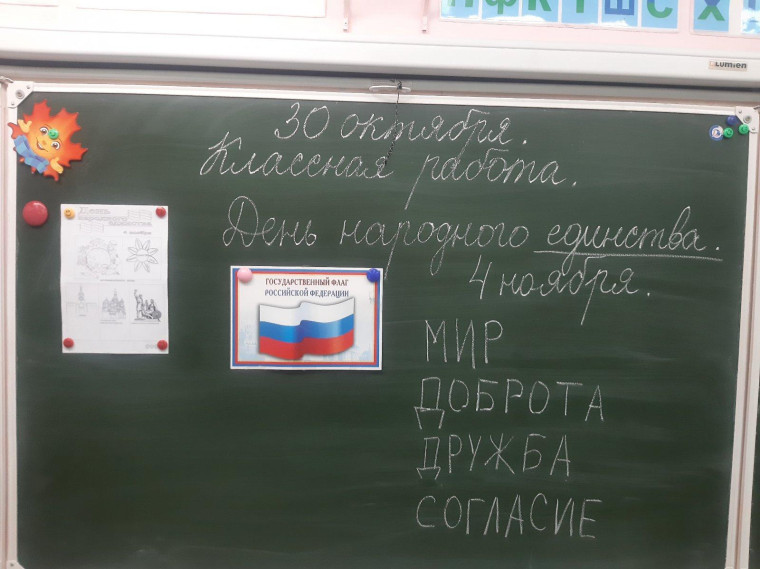 П Ф К Т Ш С Х
LUMIEN
30 октября.
Классная работа.
День народного единства.
4 ноября.
День
народного
единства
4 ноября
ГОСУДАРСТВЕННЫЙ ФЛАГ
РОССИЙСКОЙ ФЕДЕРАЦИИ
МИР
ДОБРОТА
ДРУЖБА
СОГЛАСИЕ